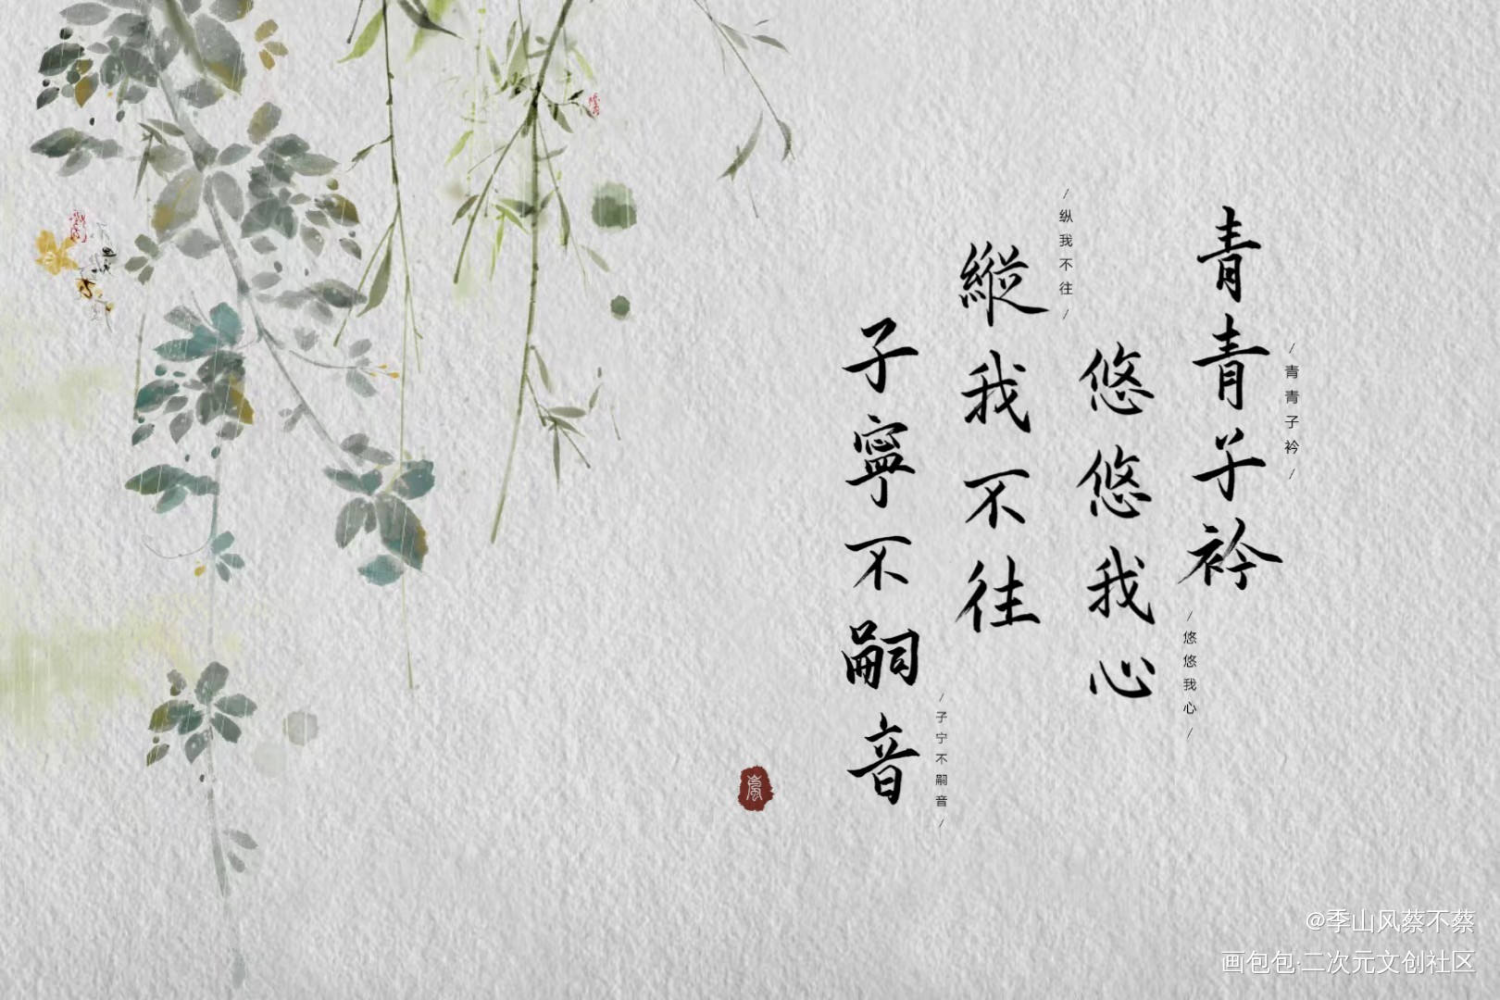 青青子衿
青青子衿
悠悠我心
悠悠我心
縱我不往
纵我不往
子寧不嗣音
子宁不嗣音
@季山风蔡不蔡
画包包·二次元文创社区